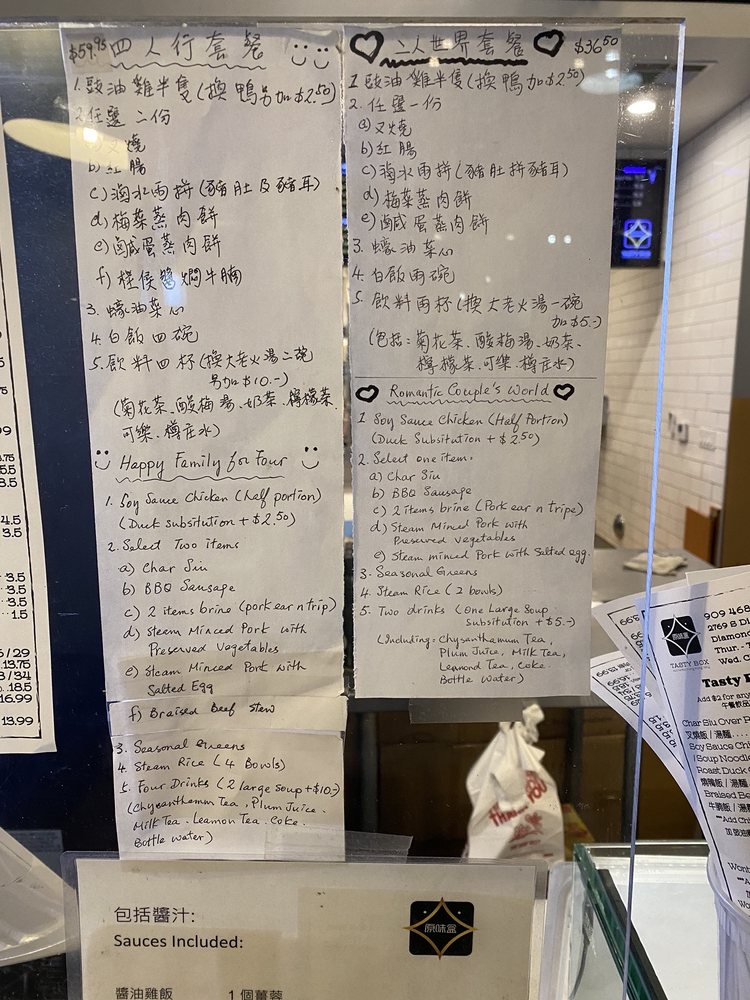 $59.95 四人行套餐
1. 豉油雞半隻(換鴨另加$2.50)
2. 任選二份
a) 叉燒
b) 紅腸
c) 滷水兩拼(豬肚及豬耳)
d) 梅菜蒸肉餅
e) 鹹蛋蒸肉餅
f) 柱侯醬燜牛腩
3. 蠔油菜心
4. 白飯四碗
5. 飲料四杯(換大老火湯二碗
另加$10.-)
(菊花茶、酸梅湯、奶茶、檸檬茶、
可樂、樽庄水)
Happy Family for Four
1. Soy Sauce Chicken (half portion)
(Duck subsitution + $2.50)
2. Select Two items
a) Char Siu
b) BBQ Sausage
c) 2 items brine (pork ear n trip)
d) Steam Minced Pork with
Preserved Vegetables
e) Steam Minced Pork with
Salted Egg
f) Braised Beef Stew
3. Seasonal Greens
4. Steam Rice (4 Bowls)
5. Four Drinks (2 large Soup +$10.-)
(Chysanthamum Tea, Plum Juice.
Milk Tea. Leamon Tea. Coke.
Bottle water)
二人世界套餐 $36.50
1 豉油雞半隻(換鴨加$2.50)
2. 任選一份
a) 叉燒
b) 紅腸
c) 滷水兩拼(豬肚拼豬耳)
d) 梅菜蒸肉餅
e) 鹹蛋蒸肉餅
3. 蠔油菜心
4. 白飯兩碗
5. 飲料兩杯(換大老火湯一碗
加$5.-)
(包括:菊花茶、酸梅湯、奶茶、
檸檬茶、可樂、樽庄水)
Romantic Couple's World
1 Soy Sauce Chicken (Half Portion)
(Duck Subsitution + $2.50)
2. Select one item.
a) Char Siu
b) BBQ Sausage
c) 2 items brine (Pork ear n tripe)
d) Steam Minced Pork with
Preserved vegetables
e) Steam minced Pork with Salted egg.
3. Seasonal Greens
4. Steam Rice (2 bowls)
5. Two drinks (One Large Soup
subsitution + $5.-)
(Including: Chysanthamum Tea,
Plum Juice, Milk Tea,
Lemond Tea, Coke.
Bottle Water)
包括醬汁:
Sauces Included:
原味盒
醬油雞飯 1 個薑蓉
THANK YOU
原味盒
TASTY BOX
909 468
2769 S D
Diamon
Thur. - 
Wed. C
Tasty
Add $2 for any
Char Siu Over
叉燒飯 / 湯麵
Soy Sauce Chi
/ Soup Noodle
Roast Duck
燒鴨飯 / 湯麵
Braised Be
牛腩飯 / 湯麵
**Add Chi
Wont
3.75
5.5
8.5
4.5
3.5
3.5
3.5
3.5
1.5
/ 29
13.75
/ 34
18.5
16.99
13.99